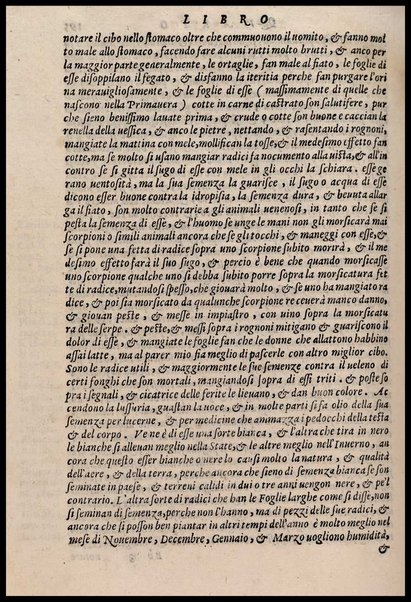 LIBRO
notare il cibo nello stomaco oltre che commuouono il uomito, & fanno mol
to male allo stomaco, facendo fare alcuni rutti molto brutti, & anco per
la maggior parte generalmente, le ortaglie, fan male al fiato, le foglie di
esse disoppilano il fegato, & disfanno la iteritia perche fan purgare l'ori
na merauigliosamente, & le foglie di esse (massimamente di quelle che
nascono nella Primauera) cotte in carne di castrato son salutifere, pur
che sieno benissimo lauate prima, & crude o cotte son buone e caccian la
renella della uessica, & anco le pietre, nettando, & rasentando i rognoni,
mangiate la mattina con mele, mollifican la tosse, & il medesimo effetto fan
cotte, ma se molto si usano mangiar radici fa nocumento alla uista, & all'in
contro se si gitta il sugo di esse con mele in gli occhi la schiara. esse ge
rano uentosità, ma la sua semenza la guarisce, il sugo o acqua di esse
dicono esser buone contra la idropisia, la semenza dura, & beuuta allar
ga il fiato, son molto contrarie a gli animali uenenosi, in tanto che se si
pesta la semenza di esse, & l'huomo se unge le mani non gli morsicarà mai
scorpioni o simili animali ancora che se gli tocchi, & maneggi con esse, &
se si pone una fetta di radice sopra uno scorpione subito morirà, & il me
desimo effetto farà il suo sugo, & percio è bene che quando morsicasse
uno scorpione qualche uno si debba subito porre sopra la morsicatura fet
te di radice, mutandosi spesso, che giouarà molto, & se uno ha mangiato ra
dice, & poi sia morsicato da qualunche scorpione receuerà manco danno,
& giouan peste, & messe in impiastro, con uino sopra la morsicatu
ra delle serpe. & peste, & messi sopra i rognoni mitigano & guariscono il
dolor di esse, & mangiate le foglie fan che le donne che allattono habbino
assai latte, ma al parer mio fia meglio di pascerle con altro miglior cibo.
Sono le radice utili, & maggiormente le sue semenze contra il ueleno di
certi fonghi che son mortali, mangiandosi sopra di essi triti. & poste so
pra i segnali, & cicatrice delle ferite le lieuano, & dan buon colore. Ac
cendono la lussuria, guastan la uoce, & in molte parti si fa olio della sua
semenza per lucerne, & per medicine che ammazza i pedocchi della testa
& del corpo. Ve ne è di esse una sorte bianca, & l'altra che tira in nero
le bianche si alleuan meglio nella State, & le altre meglio nell'Inuerno, an
cora che questo esser bianche o nere lo causi molto la natura, & qualità
dell'aere, & della terra, perche ancora che sieno di semenza bianca se son
seminate in paese, & terreni caldi in dui o tre anni uengon nere, & pel
contrario. L'altra sorte di radici che han le Foglie larghe come si disse, non
si seminan di semenza, perche non l'hanno, ma di pezzi delle sue radici, &
ancora che si posson ben piantar in altri tempi dell'anno è molto meglio nel
mese di Nouembre, Decembre, Gennaio, & Marzo uogliono humidità,
&